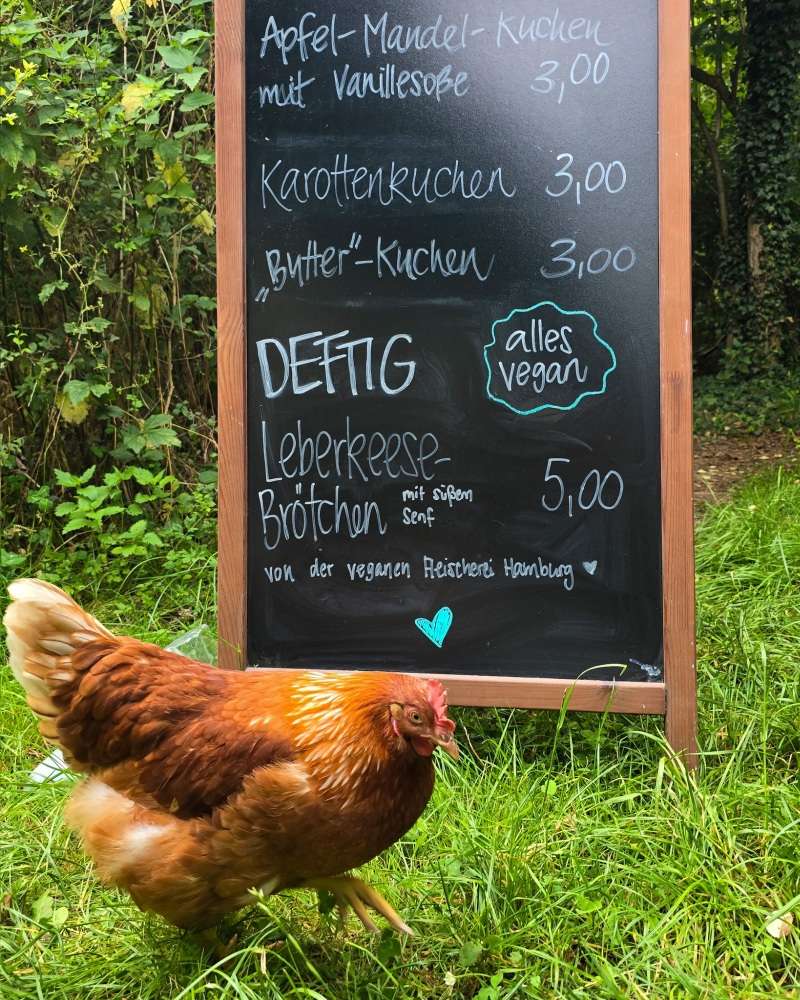 Apfel-Mandel-Kuchen
mit Vanillesoße 3,00
Karottenkuchen 3,00
„Butter"-Kuchen 3,00
DEFTIG
alles
vegan
Leberkeese-
Brötchen mit süßem
senf
5,00
von der veganen Fleischerei Hamburg